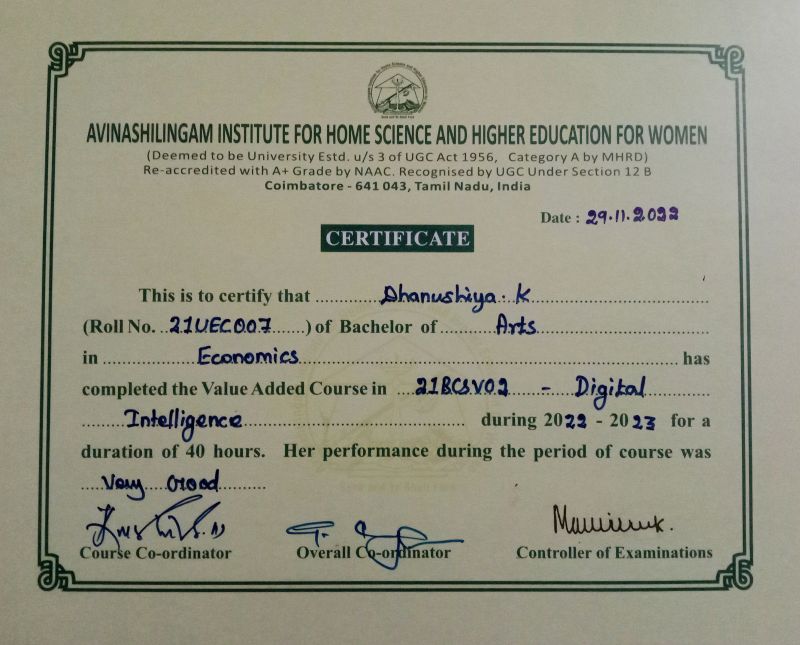 AVINASHILINGAM INSTITUTE FOR HOME SCIENCE AND HIGHER EDUCATION FOR WOMEN
(Deemed to be University Estd. u/s 3 of UGC Act 1956, Category A by MHRD)
Re-accredited with A+ Grade by NAAC. Recognised by UGC Under Section 12 B
Coimbatore - 641 043, Tamil Nadu, India
Date : 29.11.2022
CERTIFICATE
This is to certify that Dhanushiya. K
(Roll No. 21UEC007) of Bachelor of Arts
in Economics has
completed the Value Added Course in 21BCSV02 - Digital
Intelligence during 2022 - 2023 for a
duration of 40 hours. Her performance during the period of course was
Very Good
Course Co-ordinator Overall Co-ordinator Controller of Examinations